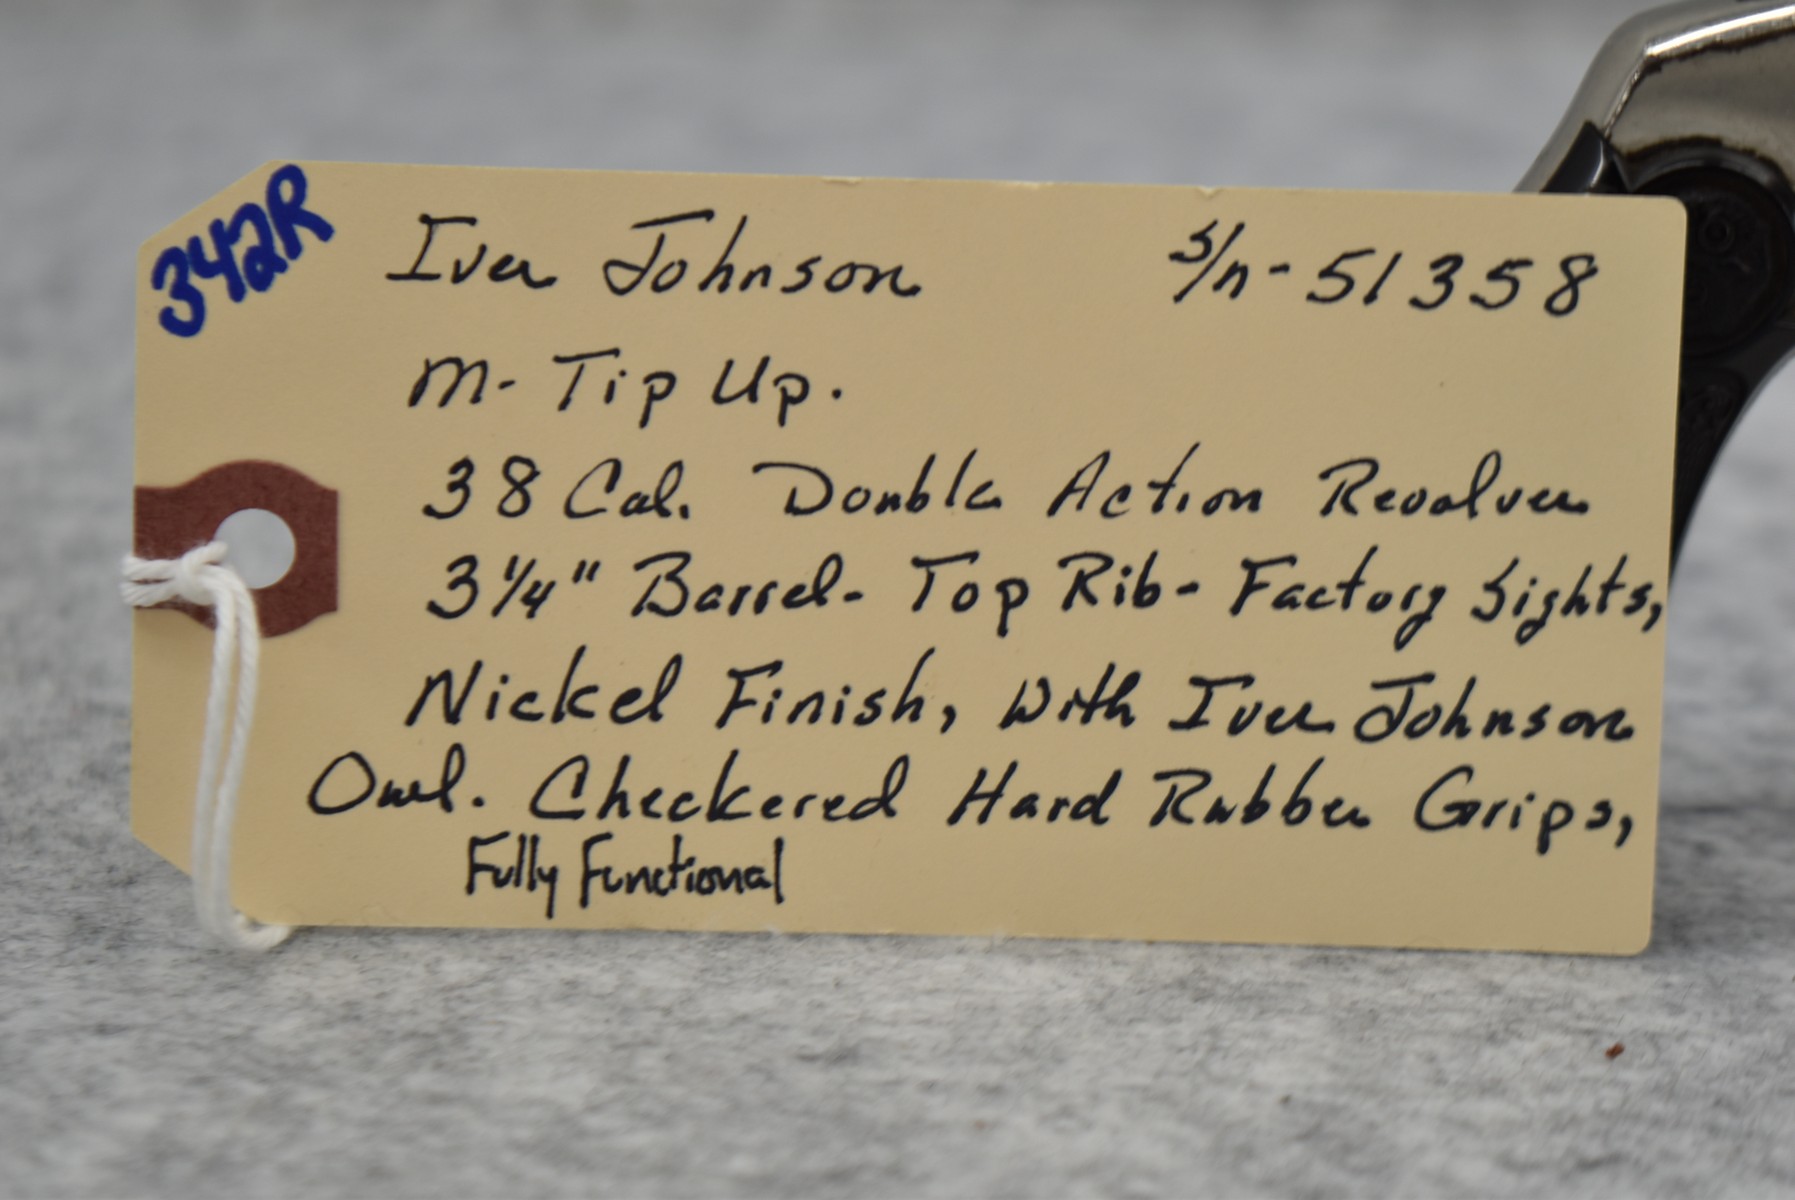 342R
Iver Johnson S/n-51358
M- Tip Up.
38 Cal. Double Action Revolver
3 1/4" Barrel- Top Rib- Factory Sights,
Nickel Finish, With Iver Johnson
Owl. Checkered Hard Rubber Grips,
Fully Functional